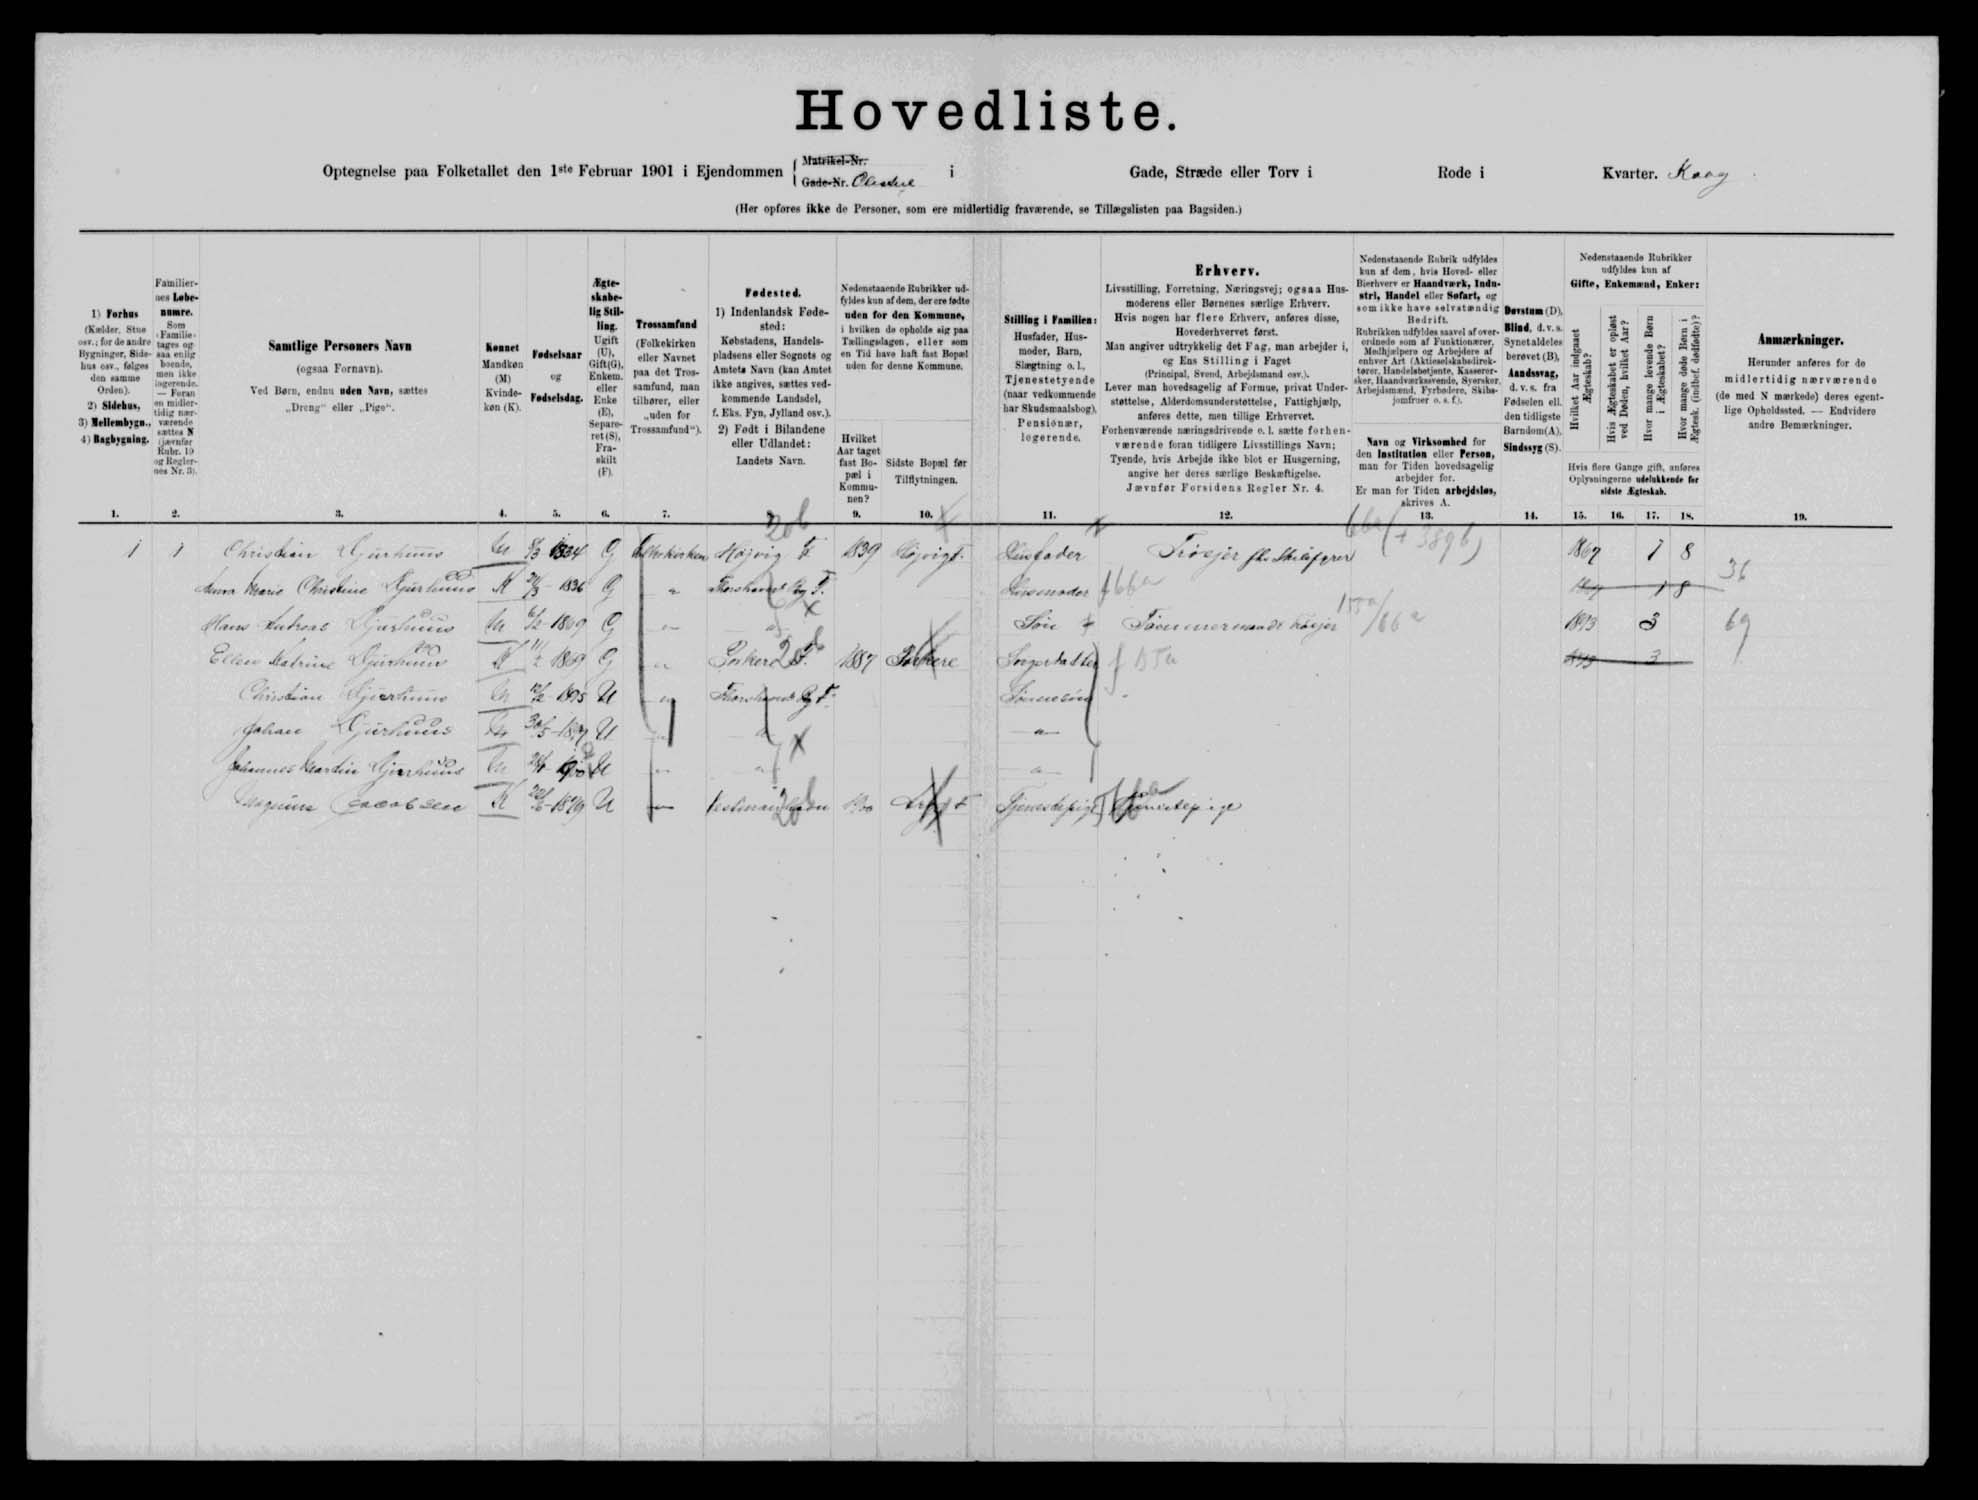 Hovedliste.
Optegnelse paa Folketallet den 1ste Februar 1901 i Ejendommen { Matrikel-Nr. Gade-Nr. i Gade, Stræde eller Torv i Rode i Kvarter.
(Her opføres ikke de Personer, som ere midlertidig fraværende, se Tillægslisten paa Bagsiden.)
1) Forhus
(Kælder, Stue
osv.; for de andre
Bygninger, Side-
hus osv., følges
den samme
Orden).
2) Sidehus,
3) Mellembygn.,
4) Bagbygning.
Familier-
nes Løbe-
numre.
Som
Familie
tages og-
saa enlig
boende,
men ikke
logerende.
— Foran
en midler-
tidig nær-
værende
sættes N
(jævnfør
Rubr. 19
og Regler-
nes Nr. 3).
Samtlige Personers Navn
(ogsaa Fornavn).
Ved Børn, endnu uden Navn, sættes
„Dreng“ eller „Pige“.
Kønnet
Mandkøn
(M)
Kvinde-
køn (K).
Fødselsaar
og
Fødselsdag.
Ægte-
skabe-
lig Stil-
ling.
Ugift
(U),
Gift(G),
Enkem.
eller
Enke
(E),
Separe-
ret (S),
Fra-
skilt
(F).
Trossamfund
(Folkekirken
eller Navnet
paa det Tros-
samfund, man
tilhører, eller
„uden for
Trossamfund“).
Fødested.
1) Indenlandsk Føde-
sted:
Købstadens, Handels-
pladsens eller Sognets og
Amtets Navn (kan Amtet
ikke angives, sættes ved-
kommende Landsdel,
f. Eks. Fyn, Jylland osv.).
2) Født i Bilandene
eller Udlandet:
Landets Navn.
Nedenstaaende Rubrikker ud-
fyldes kun af dem, der ere fødte
uden for den Kommune,
i hvilken de opholde sig paa
Tællingsdagen, eller som
en Tid have haft fast Bopæl
uden for denne Kommune.
Hvilket
Aar taget
fast Bo-
pæl i
Kommu-
nen?
Sidste Bopæl før
Tilflytningen.
Stilling i Familien:
Husfader, Hus-
moder, Barn,
Slægtning o. l.,
Tjenestetyende
(naar vedkommende
har Skudsmaalsbog),
Pensionær,
logerende.
Erhverv.
Livsstilling, Forretning, Næringsvej; ogsaa Hus-
moderens eller Børnenes særlige Erhverv.
Hvis nogen har flere Erhverv, anføres disse,
Hovederhvervet først.
Man angiver udtrykkelig det Fag, man arbejder i,
og Ens Stilling i Faget
(Principal, Svend, Arbejdsmand osv.).
Lever man hovedsagelig af Formue, privat Under-
støttelse, Alderdomsunderstøttelse, Fattighjælp,
anføres dette, men tillige Erhvervet.
Forhenværende næringsdrivende o. l. sætte forhen-
værende foran tidligere Livsstillings Navn;
Tyende, hvis Arbejde ikke blot er Husgerning,
angive her deres særlige Beskæftigelse.
Jævnfør Forsidens Regler Nr. 4.
Nedenstaaende Rubrik udfyldes
kun af dem, hvis Hoved- eller
Bierhverv er Haandværk, Indu-
stri, Handel eller Søfart, og
som ikke have selvstændig
Bedrift.
Rubrikken udfyldes saavel af over-
ordnede som af Funktionærer,
Medhjælpere og Arbejdere af
enhver Art (Aktieselskabsdirek-
tører, Handelsbetjente, Kasserer-
sker, Haandværkssvende, Syersker,
Arbejdsmænd, Fyrbødere, Skibs-
jomfruer o. s. f.).
Navn og Virksomhed for
den Institution eller Person,
man for Tiden hovedsagelig
arbejder for.
Er man for Tiden arbejdsløs,
skrives A.
Døvstum (D),
Blind, d. v. s.
Synet aldeles
berøvet (B),
Aandssvag,
d. v. s. fra
Fødselen ell.
den tidligste
Barndom(A),
Sindssyg (S).
Nedenstaaende Rubrikker
udfyldes kun af
Gifte, Enkemænd, Enker:
Hvilket Aar indgaaet
Ægteskab?
Hvis Ægteskabet er opløst
ved Døden, hvilket Aar?
Hvor mange levende Børn
i Ægteskabet?
Hvor mange døde Børn i
Ægtesk. (indbef. dødfødte)?
Hvis flere Gange gift, anføres
Oplysningerne udelukkende for
sidste Ægteskab.
Anmærkninger.
Herunder anføres for de
midlertidig nærværende
(de med N mærkede) deres egent-
lige Opholdssted. — Endvidere
andre Bemærkninger.
1. 2. 3. 4. 5. 6. 7. 8. 9. 10. 11. 12. 13. 14. 15. 16. 17. 18. 19.
1 1 Christian Djurhuus M 1834 G Folkekirken Højvig F 1839 Højvig F. Husfader 1867 1 8
Anna Marie Christine Djurhuus K 1836 G Thorshavn F. Husmoder 1867 1 8 36
Hans Andreas Djurhuus M 1869 G Søn 1893 3 69
Ellen Katrine Djurhuus K 1869 G Porkere F. 1887 Porkere 1893 3
Christian Djurhuus M 1895 U Thorshavn F. Sønnesøn
Johan Djurhuus U
Johannes Martin Djurhuus U
Jacobsen K 1879 U 1900 Tjenestepige Tjenestepige